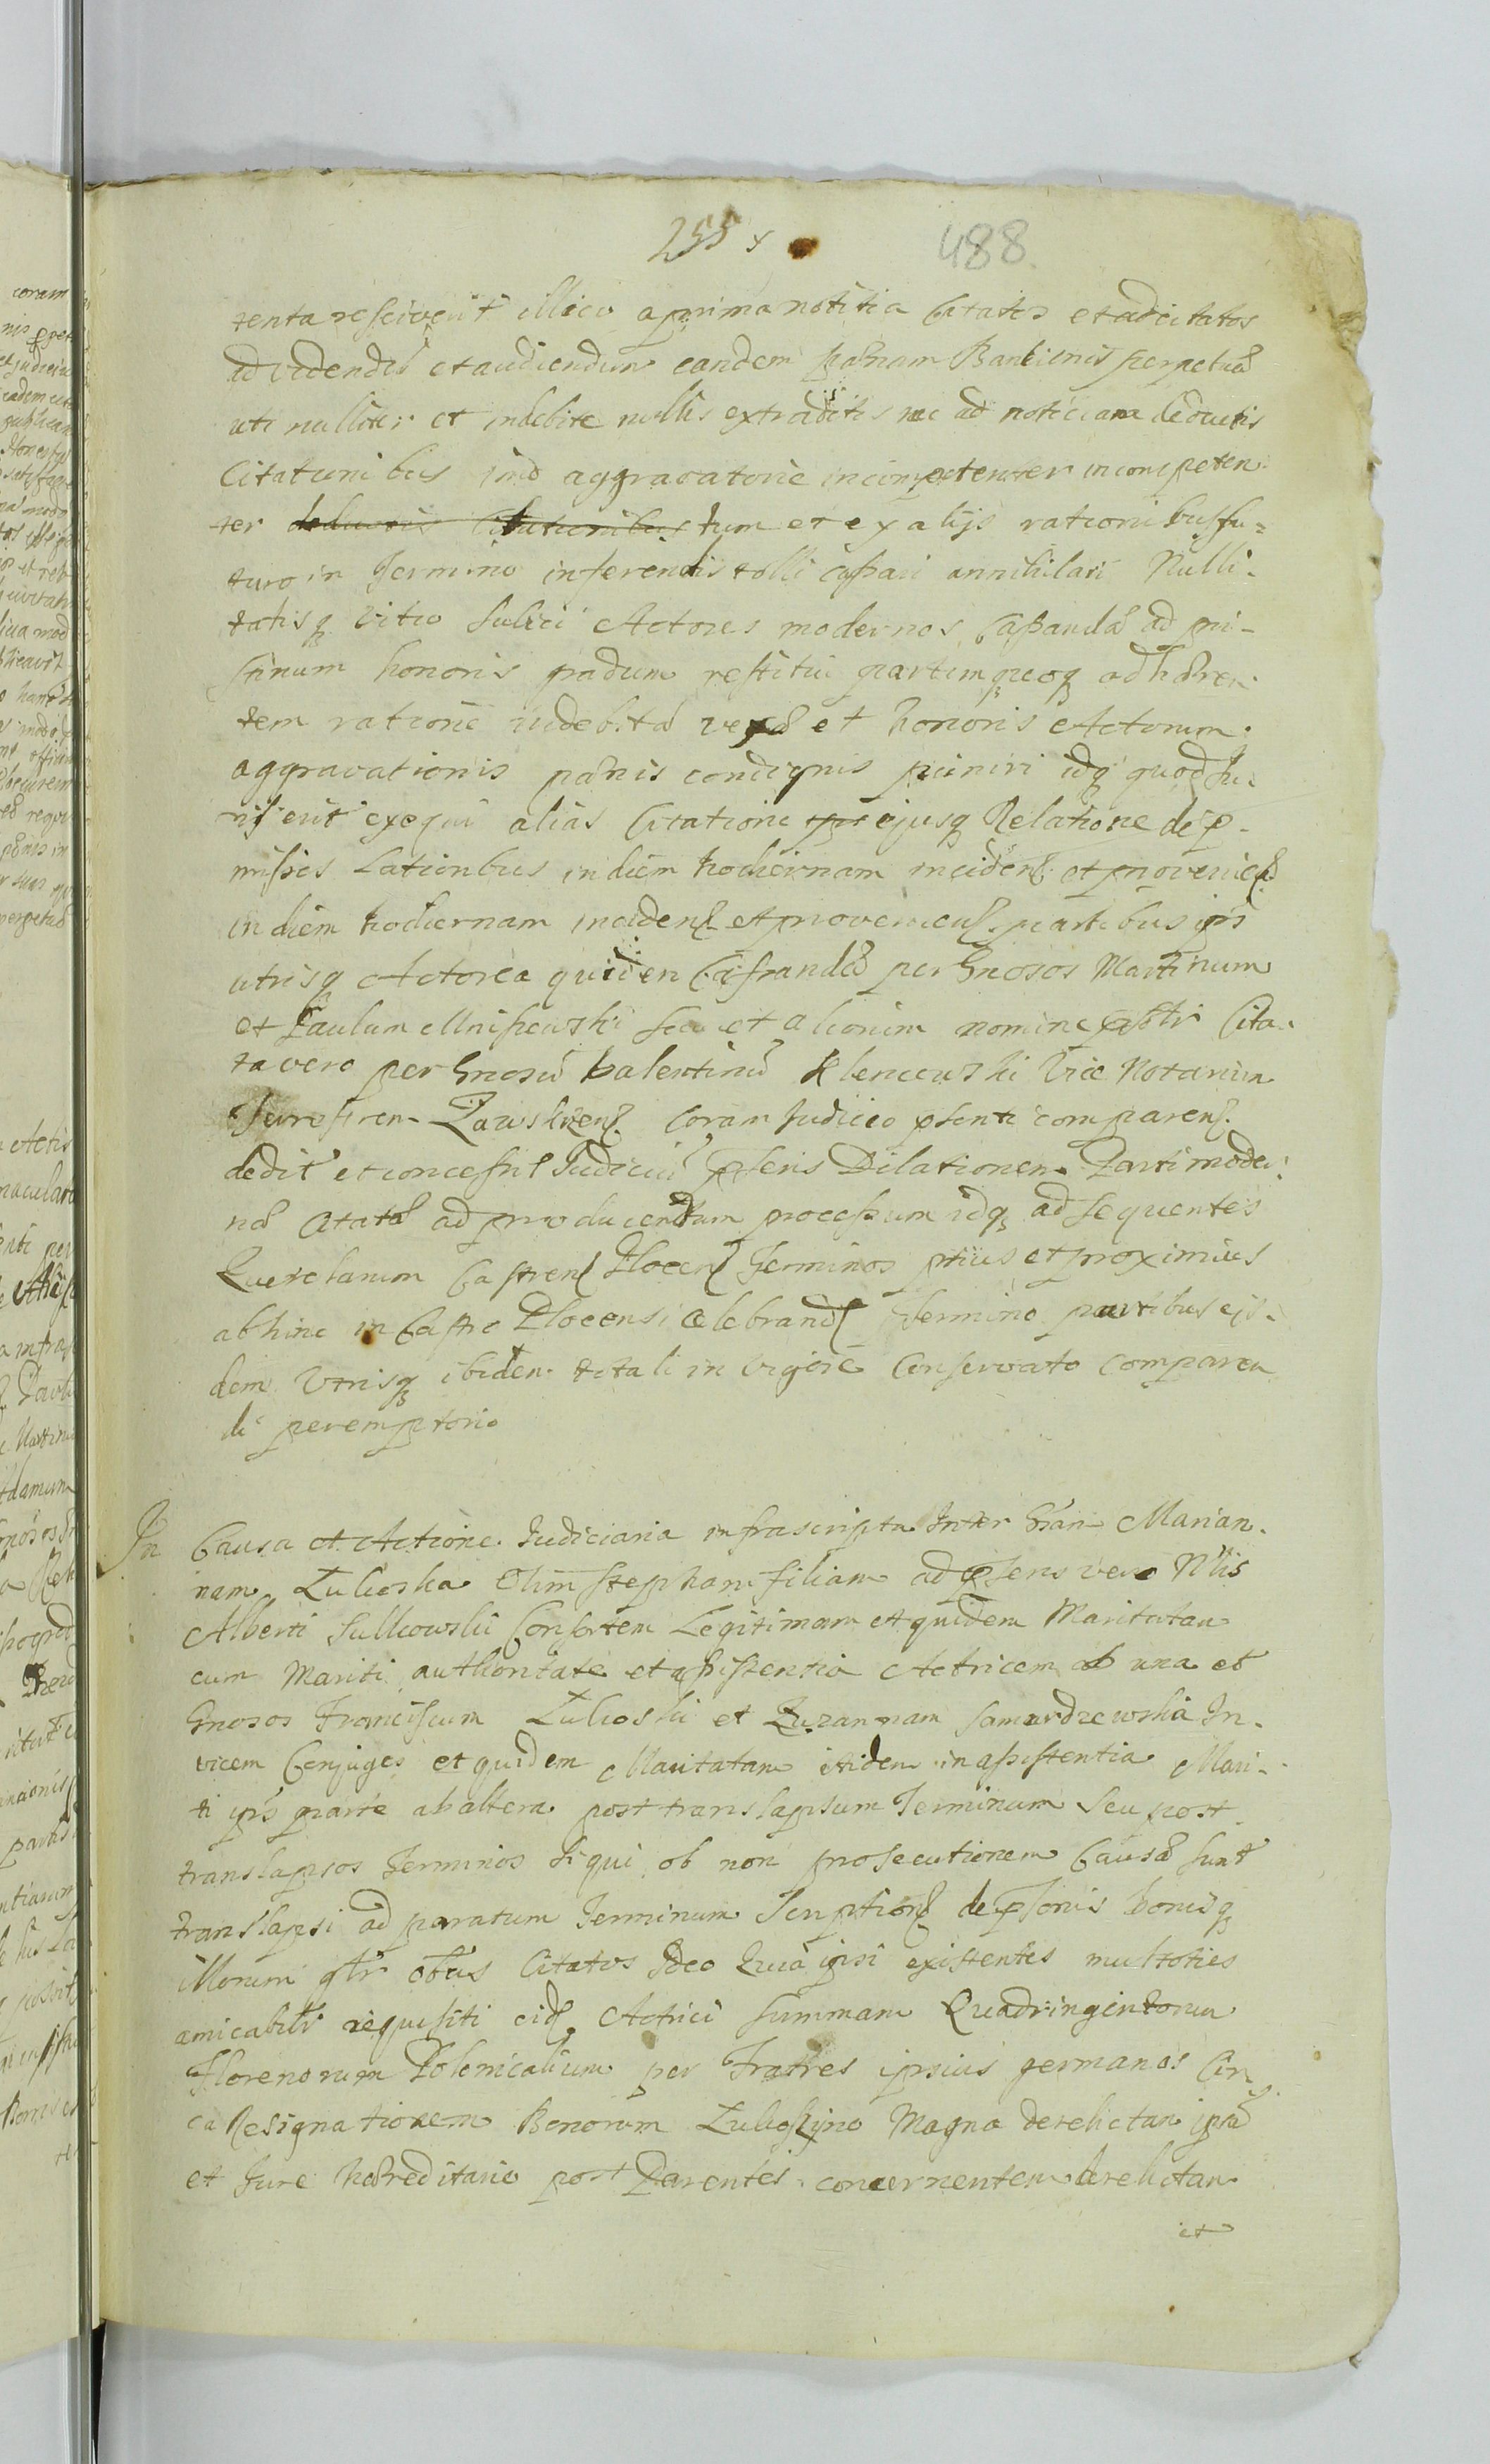 255 x 488
tenta resciverit illico a prima notitia Citatos et ad citatos
ad videndũ et audiendum eandem pænam Bannionis perpetuæ
uti nulliter et indebite nullis extraditis nec ad noticiam deductis
Citationibus imo aggravatorie incompetenter incompeten
ter deductis Citationibus tum et ex alijs rationibus fu=
turo in Termino inferendis tolli cassari annihilari Nulli-
tatisq vitio subici Actores modernos Capandæ ad pri-
stinum honoris gradum restitui partim quoq adhæren
tem ratione indebitæ vexæ et honoris Actorum
aggravationis pænis condignis puniri idq quod Ju-
ris erit exequi alias Citatione ejusq Relatione de p-
missis Lationibus in diem hodiernam inciden et provenien
in diem hodiernam inciden et provenien partibus ipis
utrisq Actorea quidem Capandæ per Gnosos Martinum
et Paulum suo et aliorum nomine Cita-
ta vero per Gnosũ Valentinũ Klencewski Vice Notarium
Castren Zawskren coram Judicio psenti comparen
dedit et concessit Judiciũ psens Dilationem Parti moder
næ Citatæ ad producendum processum idq ad sequentes
Querelarum Castren Plocen Terminos prius et proximius
abhinc in Castro Plocensi celebrand Termino partibus ejs-
dem Utrisq ibidem totali in vigore Conservato comparen
di peremptorio
In Causa et Actione Judiciaria infrascripta Inter Gsam Marian-
nam Lulioska Olim Stephani filiam ad psens vero Nlis
Alberti Sulkowski Consortem Legitimam et quidem Maritatam
cum Mariti authoritate et assistentia Actricem ab una et
Gnosos Franciscum Lulioski et Zuzannam Samardzewska In-
vicem Conjuges et quidem Maritatam itidem in assistentia Mari-
ti ipis parte ab altera post translapsum Terminum seu post
translapsos Terminos si qui ob non prosecutionem Causæ sunt
translapsi ad paratum Terminum Scription de psonis bonisq
illorum glr obus Citatos Ideo Quia ipsi existentes multoties
amicabilr requisiti eid Actrici summam Quadringentorum
Florenorum Polonicalium per Fratres ipsius germanos Cir
ca Resignationem Bonorum Magna derelictam ipsæ
et Jure hæreditario post Parentes concernentem derelictam
et